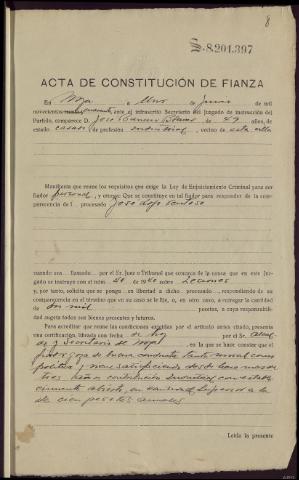 8
S-8.201.397
ACTA DE CONSTITUCIÓN DE FIANZA
En Noya a Uno de Junio de mil
novecientos cuarenta ante el infrascrito Secretario del Juzgado de instrucción del
Partido, comparece D. José de 49 años, de
estado casado de profesión industrial, vecino de esta villa
Manifiesta que reune los requisitos que exige la Ley de Enjuiciamiento Criminal para ser
fiador personal, y otorga: Que se constituye en tal fiador para responder de la com-
parecencia de l procesado José
cuando sea llamado por el Sr. Juez o Tribunal que conozca de la causa que en este Juz-
gado se instruye con el núm. 40 de 1940 sobre Lesiones
y, por tanto, solicita que se ponga en libertad a dicho procesado respondiendo de su
comparecencia en el término que en su caso se le fije, o, en otro caso, a entregar la cantidad
de mil pesetas, a cuya responsabili-
dad sujeta todos sus bienes presentes y futuros.
Para acreditar que reune las condiciones exigidas por el artículo antes citado, presenta
una certificación, librada con fecha de hoy por el Sr.
y Secretario de Noya en la que se hace constar que el
fiador goza de buena conducta tanto moral como
política y viene satisfaciendo desde hace mas de
tres años contribución industrial con estable-
cimiento abierto, en cantidad superior a la
de cien pesetas anuales
Leída la presente